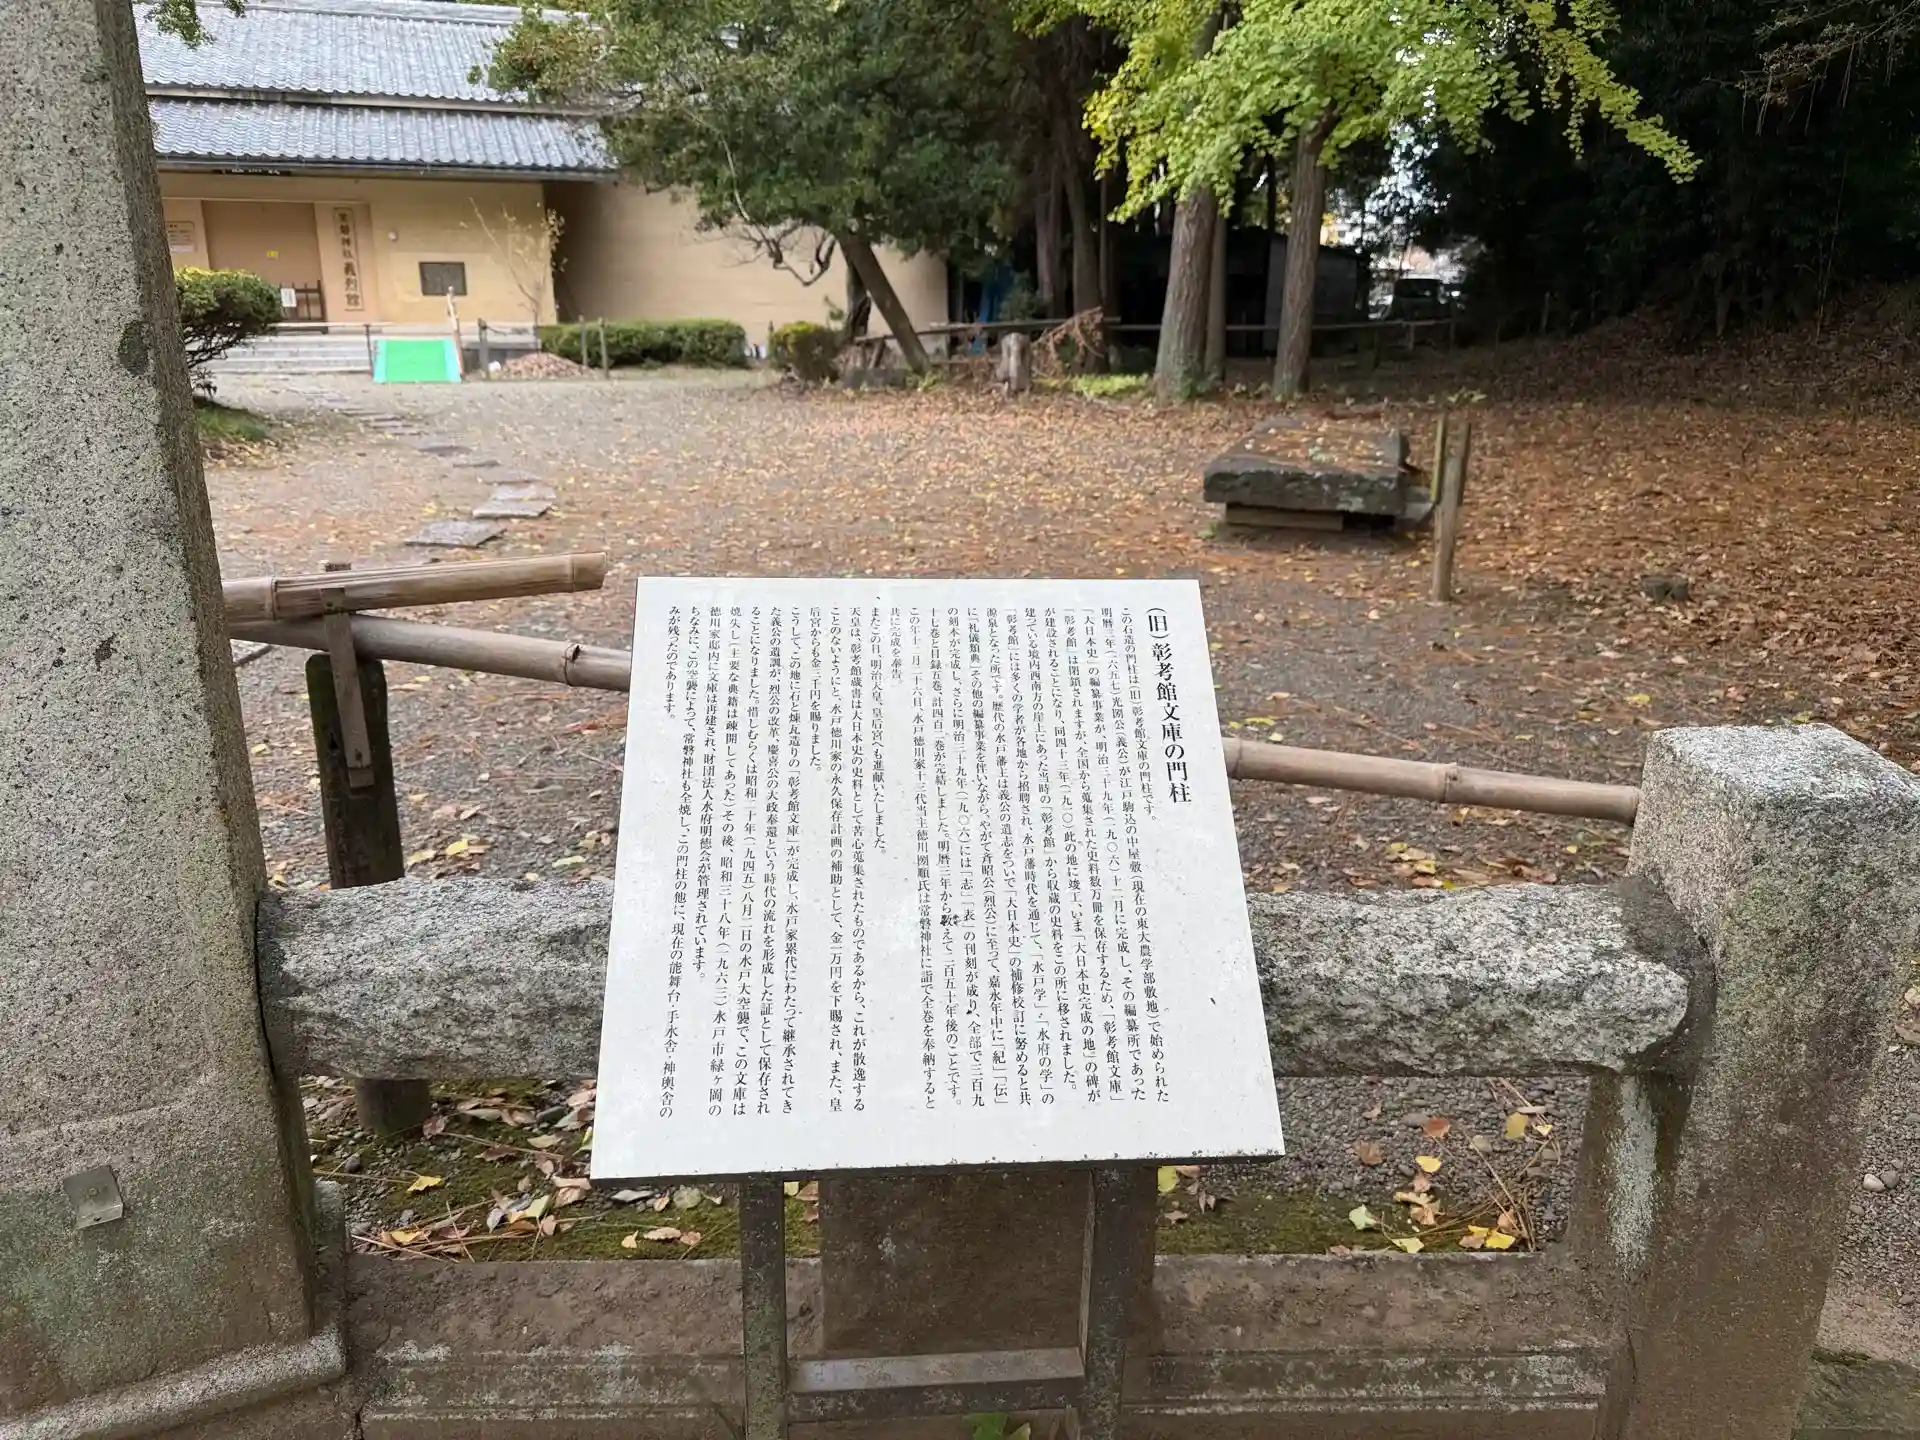 (旧)彰考館文庫の門柱
この石造の門柱は(旧)彰考館文庫の門柱です。
明暦三年(一六五七)光圀公(義公)が江戸駒込の中屋敷(現在の東大農学部敷地)で始められた
『大日本史』の編纂事業が、明治三十九年(一九〇六)十二月に完成し、その編纂所であった
「彰考館」は閉鎖されますが、全国から蒐集された史料数万冊を保存するため、「彰考館文庫」
が建設されることになり、同四十三年(一九一〇)此の地に竣工、いま「大日本史完成の地」の碑が
建っている境内西南方の崖上にあった当時の「彰考館」から収蔵の史料をこの所に移されました。
「彰考館」には多くの学者が各地から招聘され、水戸藩時代を通じて、「水戸学」・「水府の学」の
源泉となった所です。歴代の水戸藩主は義公の遺志をついで「大日本史」の補修校訂に努めると共
に「礼儀類典」その他の編纂事業を伴いながら、やがて斉昭公(烈公)に至って、嘉永年中に「紀」「伝」
の刻本が完成し、さらに明治三十九年(一九〇六)には「志」「表」の刊刻が成り、全部で三百九
十七巻と目録五巻、計四百二巻が完結しました。明暦三年から数えて二百五十年後のことです。
この年十二月二十六日、水戸徳川家十三代当主徳川圀順氏は常磐神社に詣で全巻を奉納すると
共に完成を奉告。
、またこの日、明治天皇、皇后宮へも進献いたしました。
天皇は、彰考館蔵書は大日本史の史料として苦心蒐集されたものであるから、これが散逸する
ことのないようにと、水戸徳川家の永久保存計画の補助として、金一万円を下賜され、また、皇
后宮からも金三千円を賜りました。
こうして、この地に石と煉瓦造りの「彰考館文庫」が完成し、水戸家累代にわたって継承されてき
た義公の遺訓が、烈公の改革、慶喜公の大政奉還という時代の流れを形成した証として保存され
ることになりました。惜しむらくは昭和二十年(一九四五)八月二日の水戸大空襲で、この文庫は
焼失し(主要な典籍は疎開してあった)その後、昭和三十八年(一九六三)水戸市緑ヶ岡の
徳川家邸内に文庫は再建され、財団法人水府明徳会が管理されています。
ちなみに、この空襲によって、常磐神社も全焼し、この門柱の他に、現在の能舞台・手水舎・神輿舎の
みが残ったのであります。
常磐神社義烈館